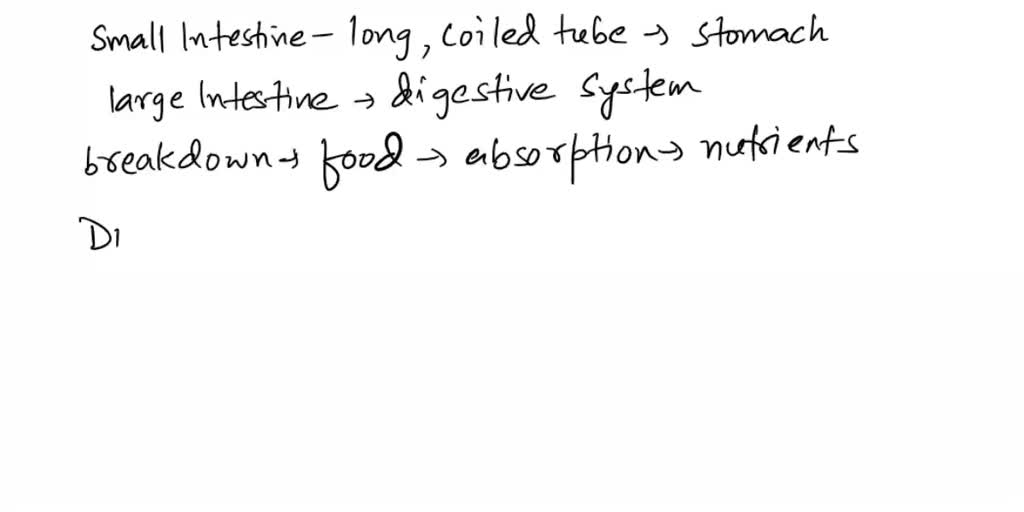 Small Intestine - long, coiled tube → stomach
large Intestine → digestive system
breakdown → food → absorption → nutrients
DI